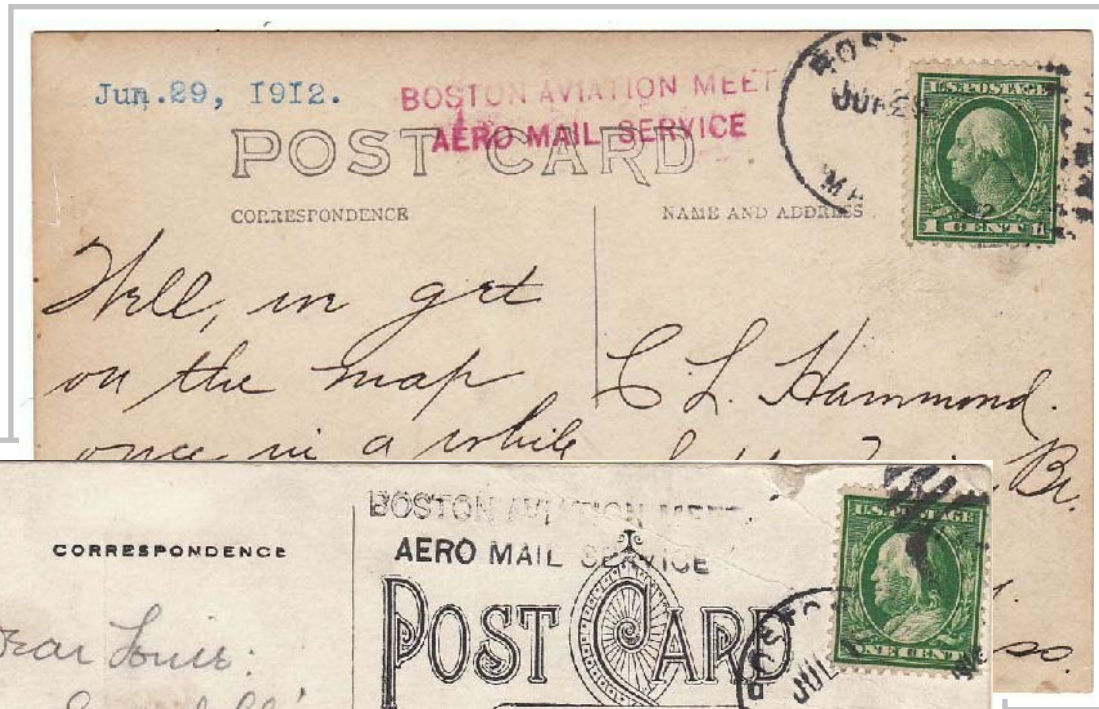 Jun.29, 1912.
BOSTON AVIATION MEET
AERO MAIL SERVICE
POST CARD
CORRESPONDENCE
NAME AND ADDRESS
JUN 29
U.S. POSTAGE
1 CENT 1
Well, we get
on the map
once in a while
C. L. Hammond.
Br.
so.
CORRESPONDENCE
BOSTON AVIATION MEET
AERO MAIL SERVICE
POST CARD
BOSTON
JUL
U.S. POSTAGE
ONE CENT
Dear Louis: